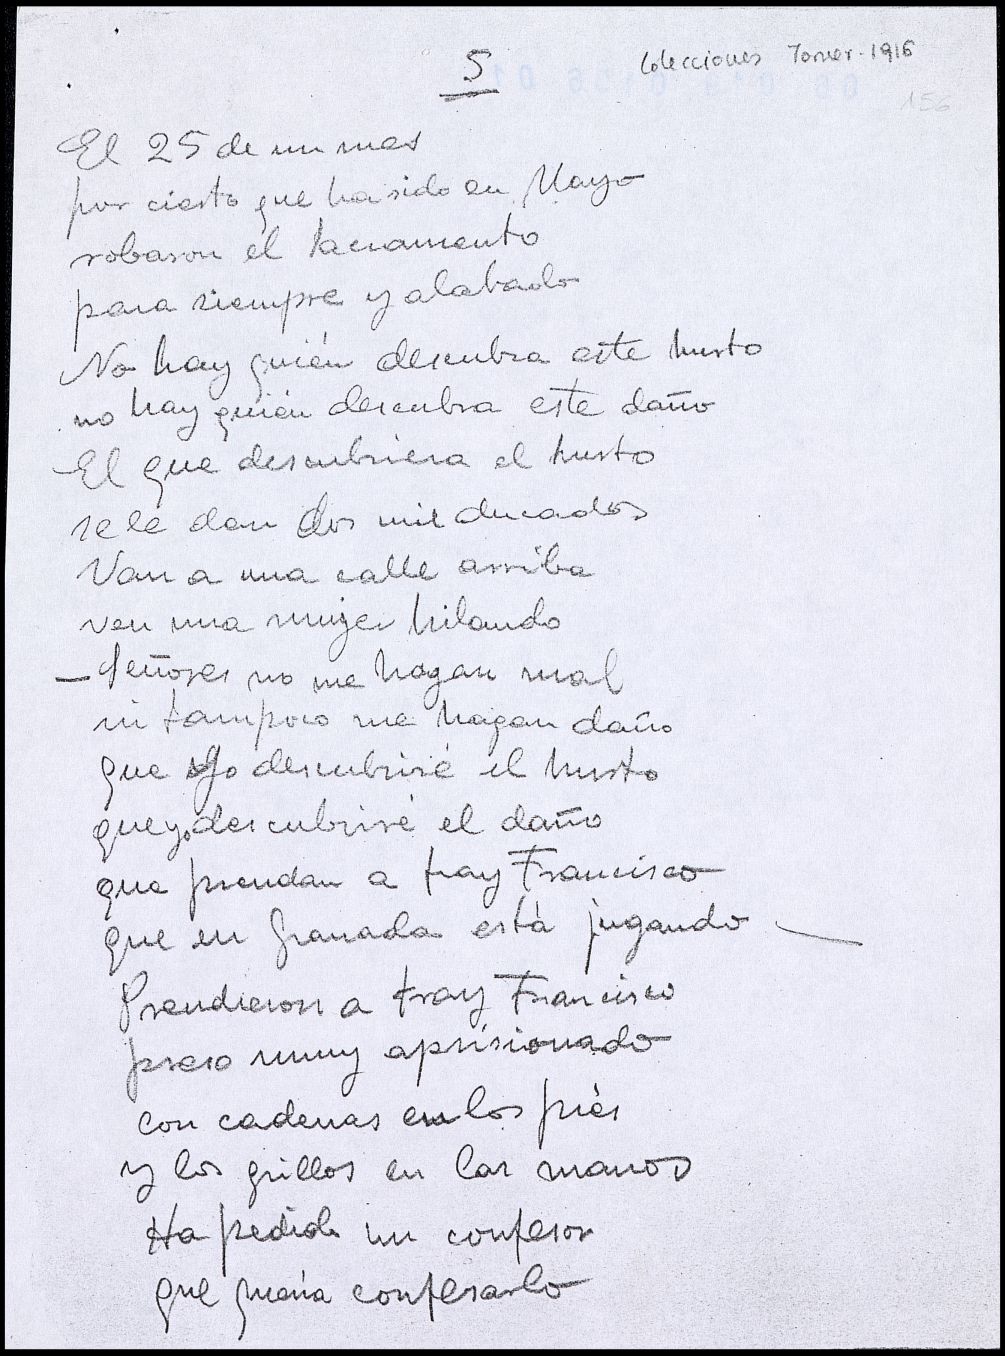 5
Colecciones Torner-1916
156
El 25 de un mes
por cierto que ha sido en Mayo
robaron el Sacramento
para siempre y alabado
No hay quién descubra este hurto
no hay quién descubra este daño
El que descubriera el hurto
se le dan dos mil ducados
Van a una calle arriba
ven una mujer hilando
— Señores no me hagan mal
ni tampoco me hagan daño
que yo descubriré el hurto
que yo descubriré el daño
que prendan a fray Francisco
que en Granada está jugando —
Prendieron a fray Francisco
preso muy aprisionado
con cadenas en los piés
y los grillos en las manos
Ha pedido un confesor
que quería confesarlo